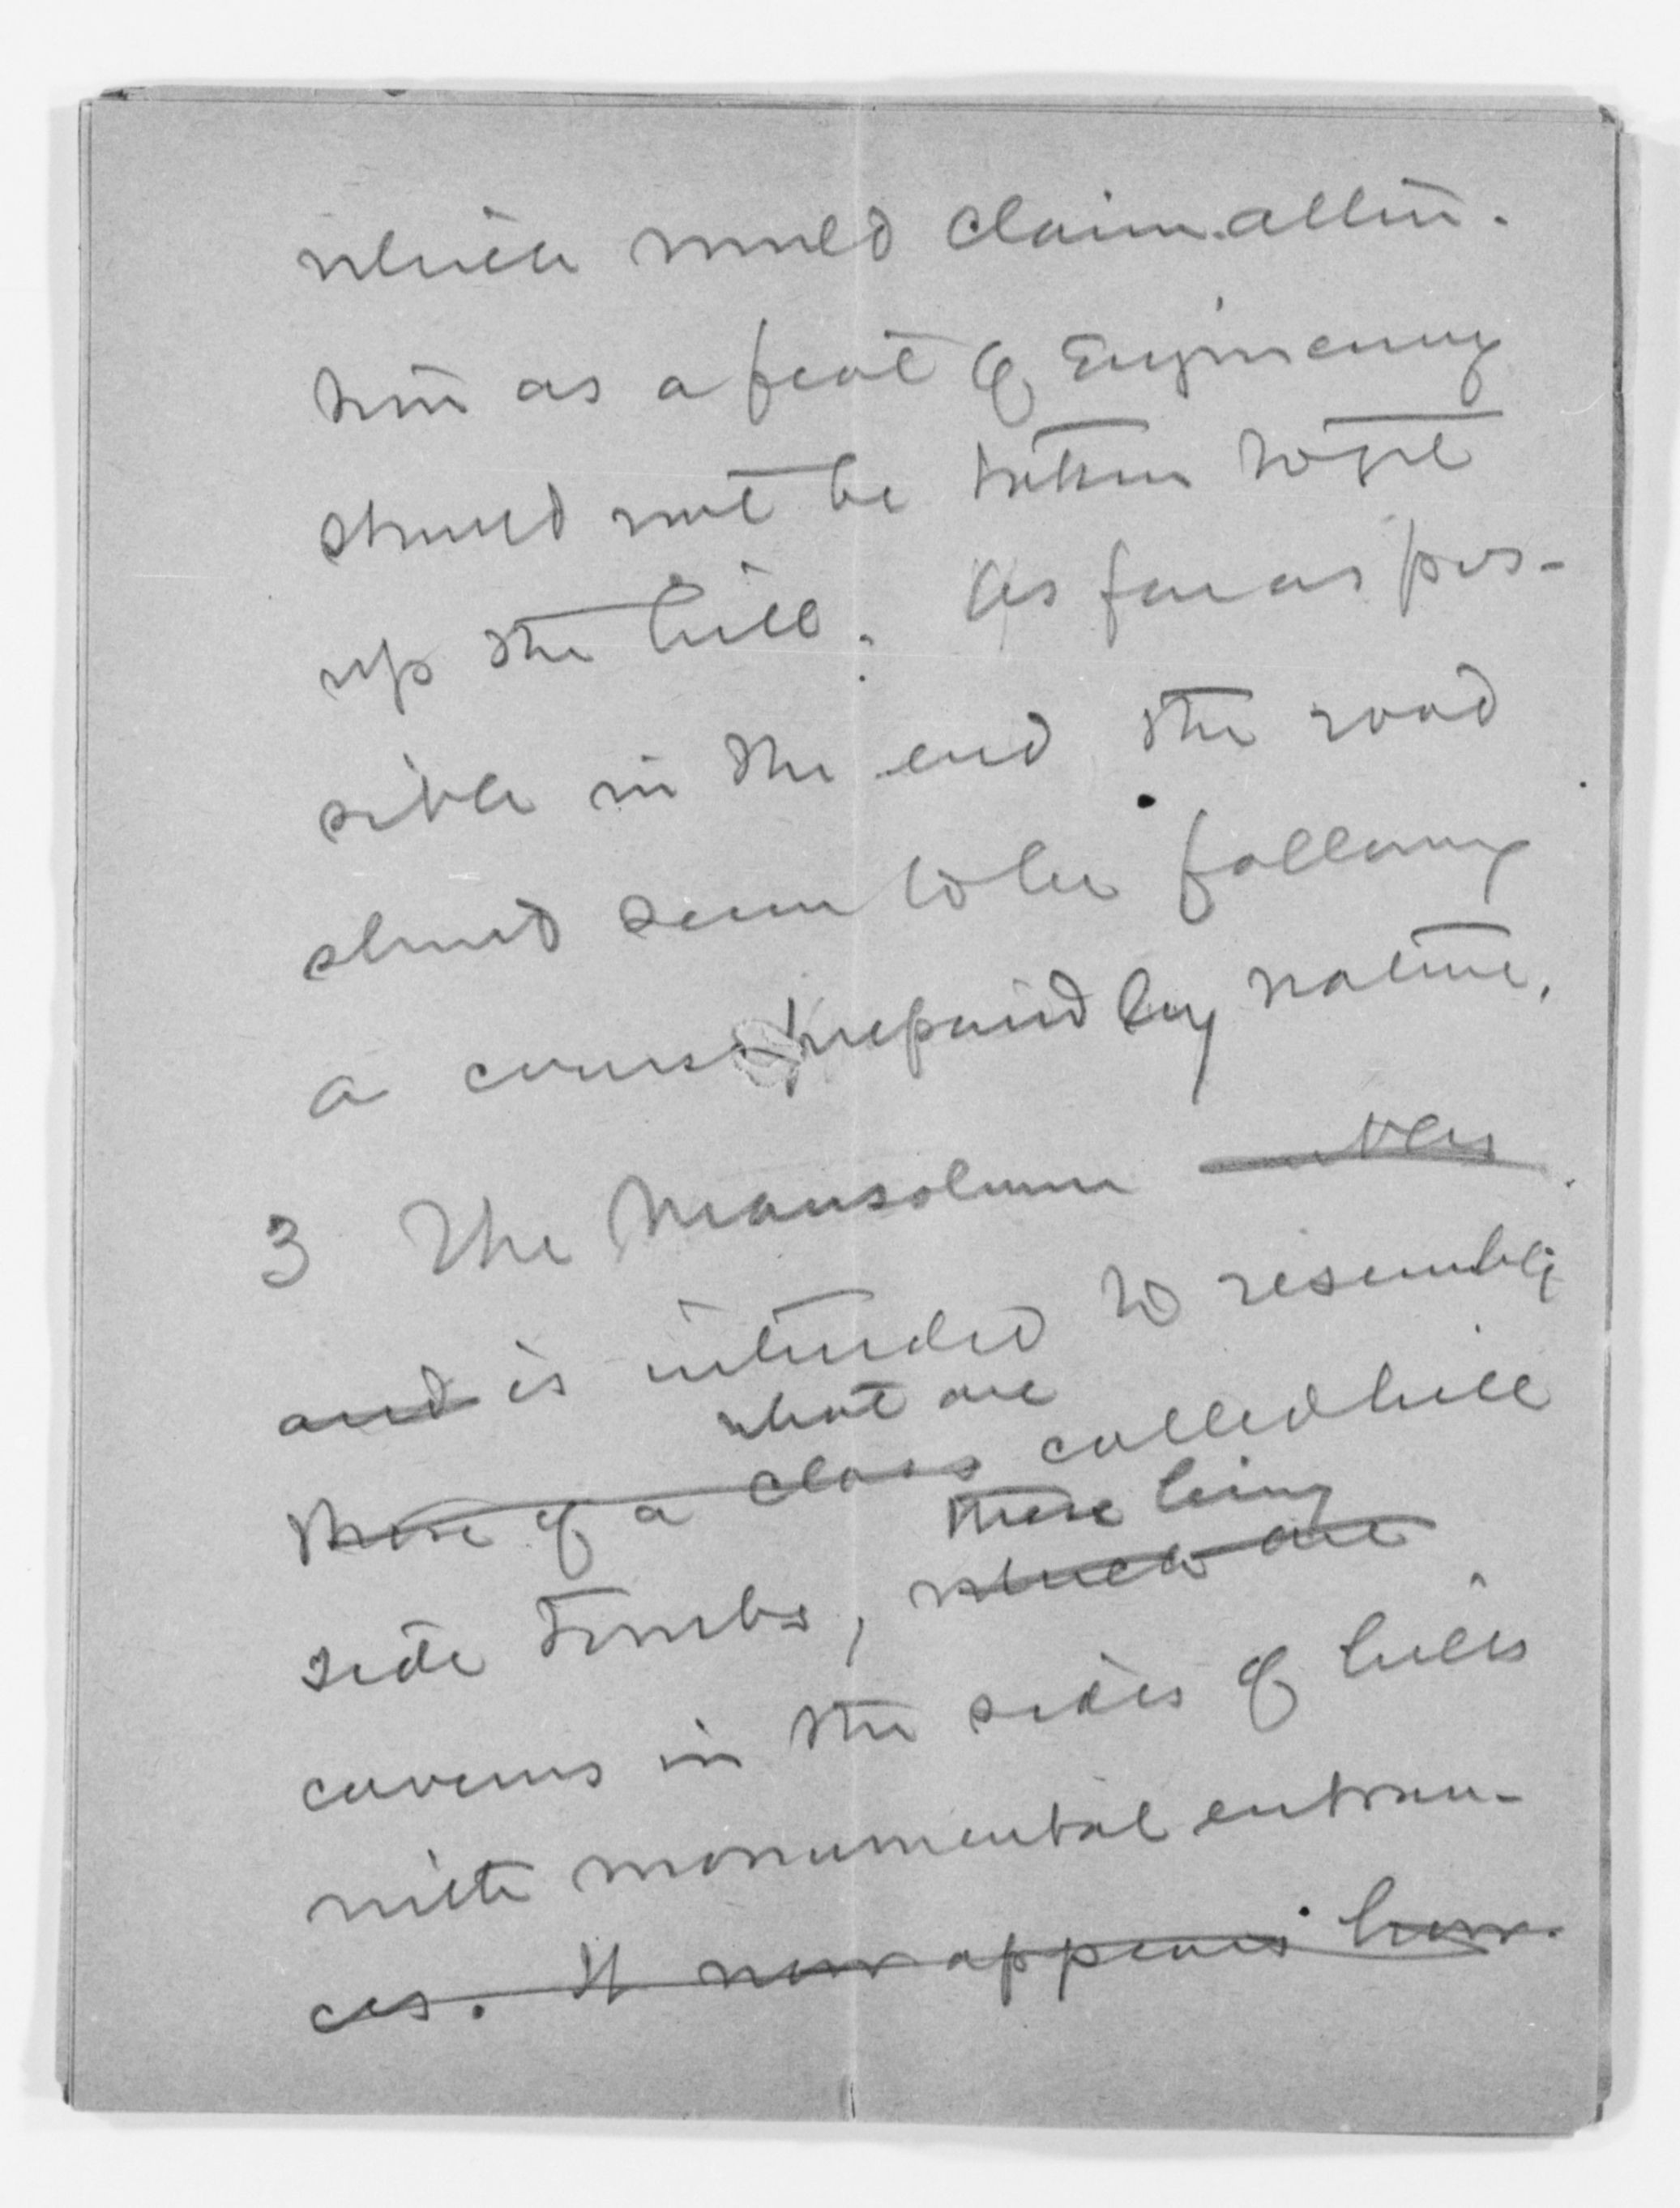 which would claim atten-
tion as a feat of Engineering
should not be taken to get
up the hill. As far as pos-
sible in the end the road
should seem to be following
a course prepared by nature.
3 The Mausoleum
and is intended to resemble
what are
those of a class called hill
these being
side Tombs, which are
caverns in the sides of hills
with monumental entran-
ces. It now appears how-